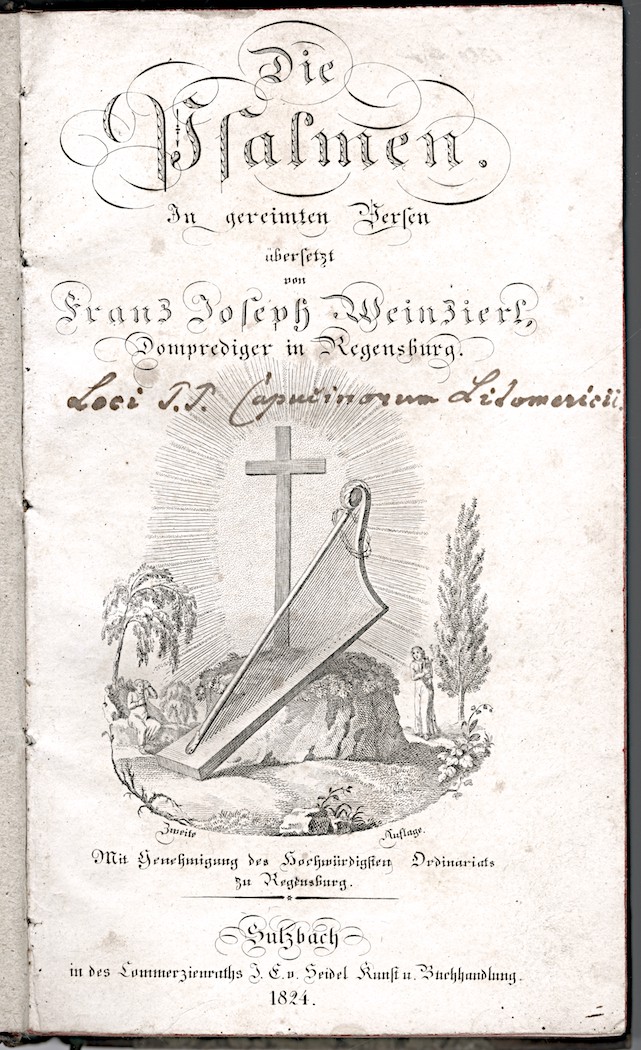 Die
Psalmen.
In gereimten Versen
übersetzt
von
Franz Joseph Weinzierl,
Domprediger in Regensburg.
Loci P.P. Capucinorum Litomericii.
Zweite Auflage.
Mit Genehmigung des Hochwürdigsten Ordinariats
zu Regensburg.
Sulzbach
in des Commerzienraths J. E. v. Seidel Kunst u. Buchhandlung.
1824.